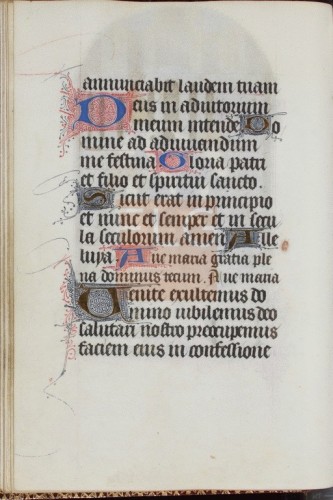 annunciabit laudem tuam
Deus in adiutorium
meum intende Do
mine ad adiuuandum
me festina Gloria patri
et filio et spiritui sancto.
Sicut erat in principio
et nunc et semper et in secu
la seculorum amen Alle
luya Aue maria gratia ple
na dominus tecum. Aue maria
Uenite exultemus do
mino iubilemus deo
salutari nostro preocupemus
faciem eius in confessione